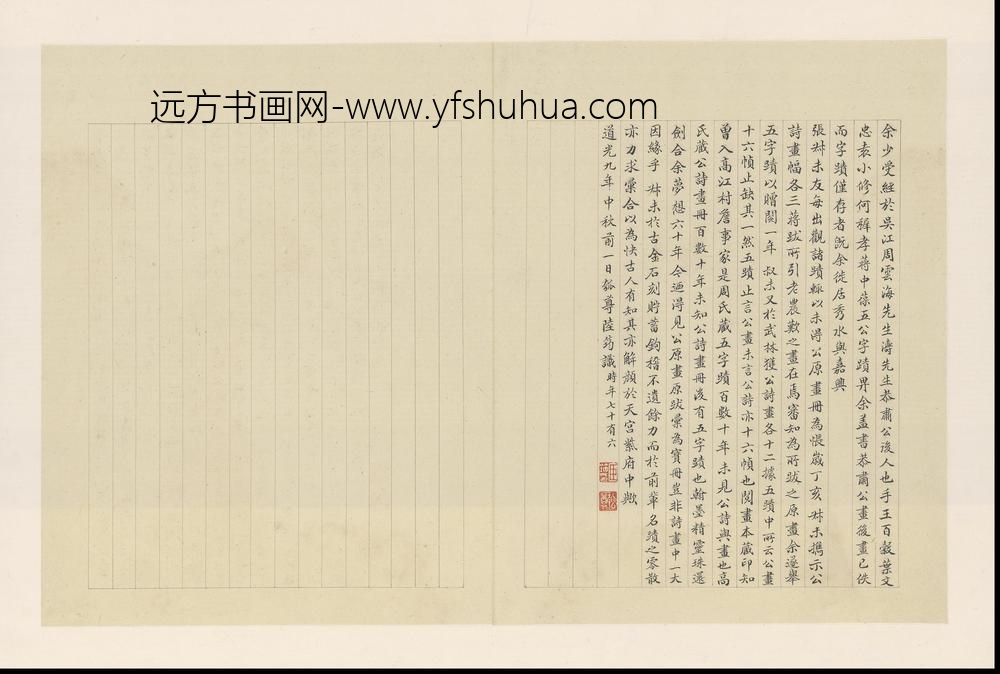 远方书画网-www.yfshuhua.com
余少受經於吳江周雲海先生濤先生恭肅公後人也手王百穀葉文
忠袁小修何稺孝蔣中葆五公字蹟畀余盖書恭肅公畫後畫已佚
而字蹟僅存者既余徙居秀水與嘉興
張叔未友每出觀諸蹟輒以未得公原畫冊為悵歲丁亥叔未攜示公
詩畫幅各三蔣跋所引老農歎之畫在焉審知為所跋之原畫余遂舉
五字蹟以贈閱一年叔未又於武林獲公詩畫各十二據五蹟中所云公畫
十六幀止缺其一然五蹟止言公畫未言公詩亦十六幀也閱畫本藏印知
曾入高江村詹事家是周氏藏五字蹟百數十年未見公詩與畫也高
氏藏公詩畫冊百數十年未知公詩畫冊後有五字蹟也翰墨精靈珠還
劍合余夢想六十年今迺得見公原畫原跋彙為寶冊豈非詩畫中一大
因緣乎叔未於古金石刻貯蓄鉤稽不遺餘力而於前輩名蹟之零散
亦力求彙合以為快古人有知其亦解顏於天宮紫府中歟
道光九年中秋前一日瓠尊陸筠識時年七十有六